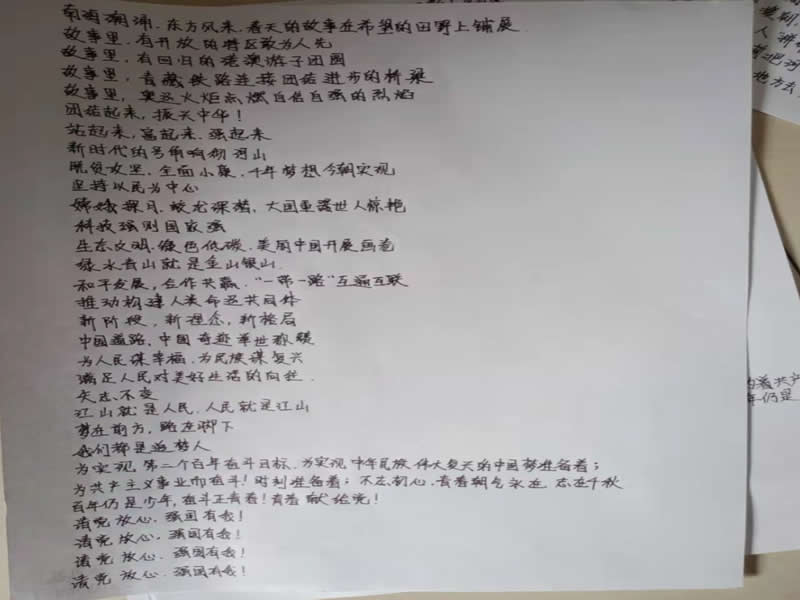 南海潮涌,东方风来,春天的故事在希望的田野上铺展
故事里,有开放的特区敢为人先
故事里,有回归的港澳游子团圆
故事里,青藏铁路连接团结进步的桥梁
故事里,奥运火炬点燃自信自强的烈焰
团结起来,振兴中华!
站起来,富起来,强起来
新时代的号角响彻河山
脱贫攻坚,全面小康,千年梦想今朝实现
坚持以民为中心
嫦娥探月,蛟龙深潜,大国重器世人惊艳
科技强则国家强
生态文明,绿色低碳,美丽中国开展画卷
绿水青山就是金山银山
和平发展,合作共赢,“一带一路”互通互联
推动构建人类命运共同体
新阶段,新理念,新格局
中国道路,中国奇迹举世称赞
为人民谋幸福,为民族谋复兴
满足人民对美好生活的向往
矢志不变
江山就是人民,人民就是江山
梦在前方,路在脚下
我们都是追梦人
为实现第二个百年奋斗目标,为实现中华民族伟大复兴的中国梦准备着;
为共产主义事业而奋斗!时刻准备着;不忘初心,青春朝气永在,志在千秋
百年仍是少年,奋斗正青春!青春献给党!
请党放心,强国有我!
请党放心,强国有我!
请党放心,强国有我!
请党放心,强国有我!
的着共产
年仍是